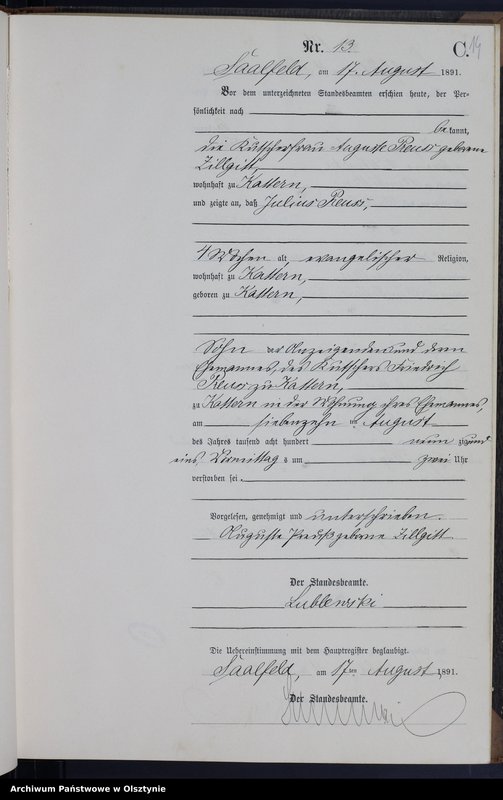 Nr. 13
C.
14
Saalfeld, am 17. August 1891.
Vor dem unterzeichneten Standesbeamten erschien heute, der Per-
sönlichkeit nach
be kannt,
die Kutscherfrau Auguste Preuss geborene
Zillgitt,
wohnhaft zu Kattern,
und zeigte an, daß Julius Preuss,
4 Wochen alt, evangelischer Religion,
wohnhaft zu Kattern,
geboren zu Kattern,
Sohn der Anzeigenden und deren
Ehemannes, des Kutschers Friedrich
Preuss zu Kattern,
zu Kattern in der Wohnung ihres Ehemannes,
am siebenzehn ten August
des Jahres tausend acht hundert neun zig und
eins Vormittags um zwei Uhr
verstorben sei.
Vorgelesen, genehmigt und unterschrieben.
Auguste Preuß geborne Zillgitt
Der Standesbeamte.
Lublewski
Die Uebereinstimmung mit dem Hauptregister beglaubigt.
Saalfeld, am 17ten August 1891.
Der Standesbeamte.
Archiwum Państwowe w Olsztynie